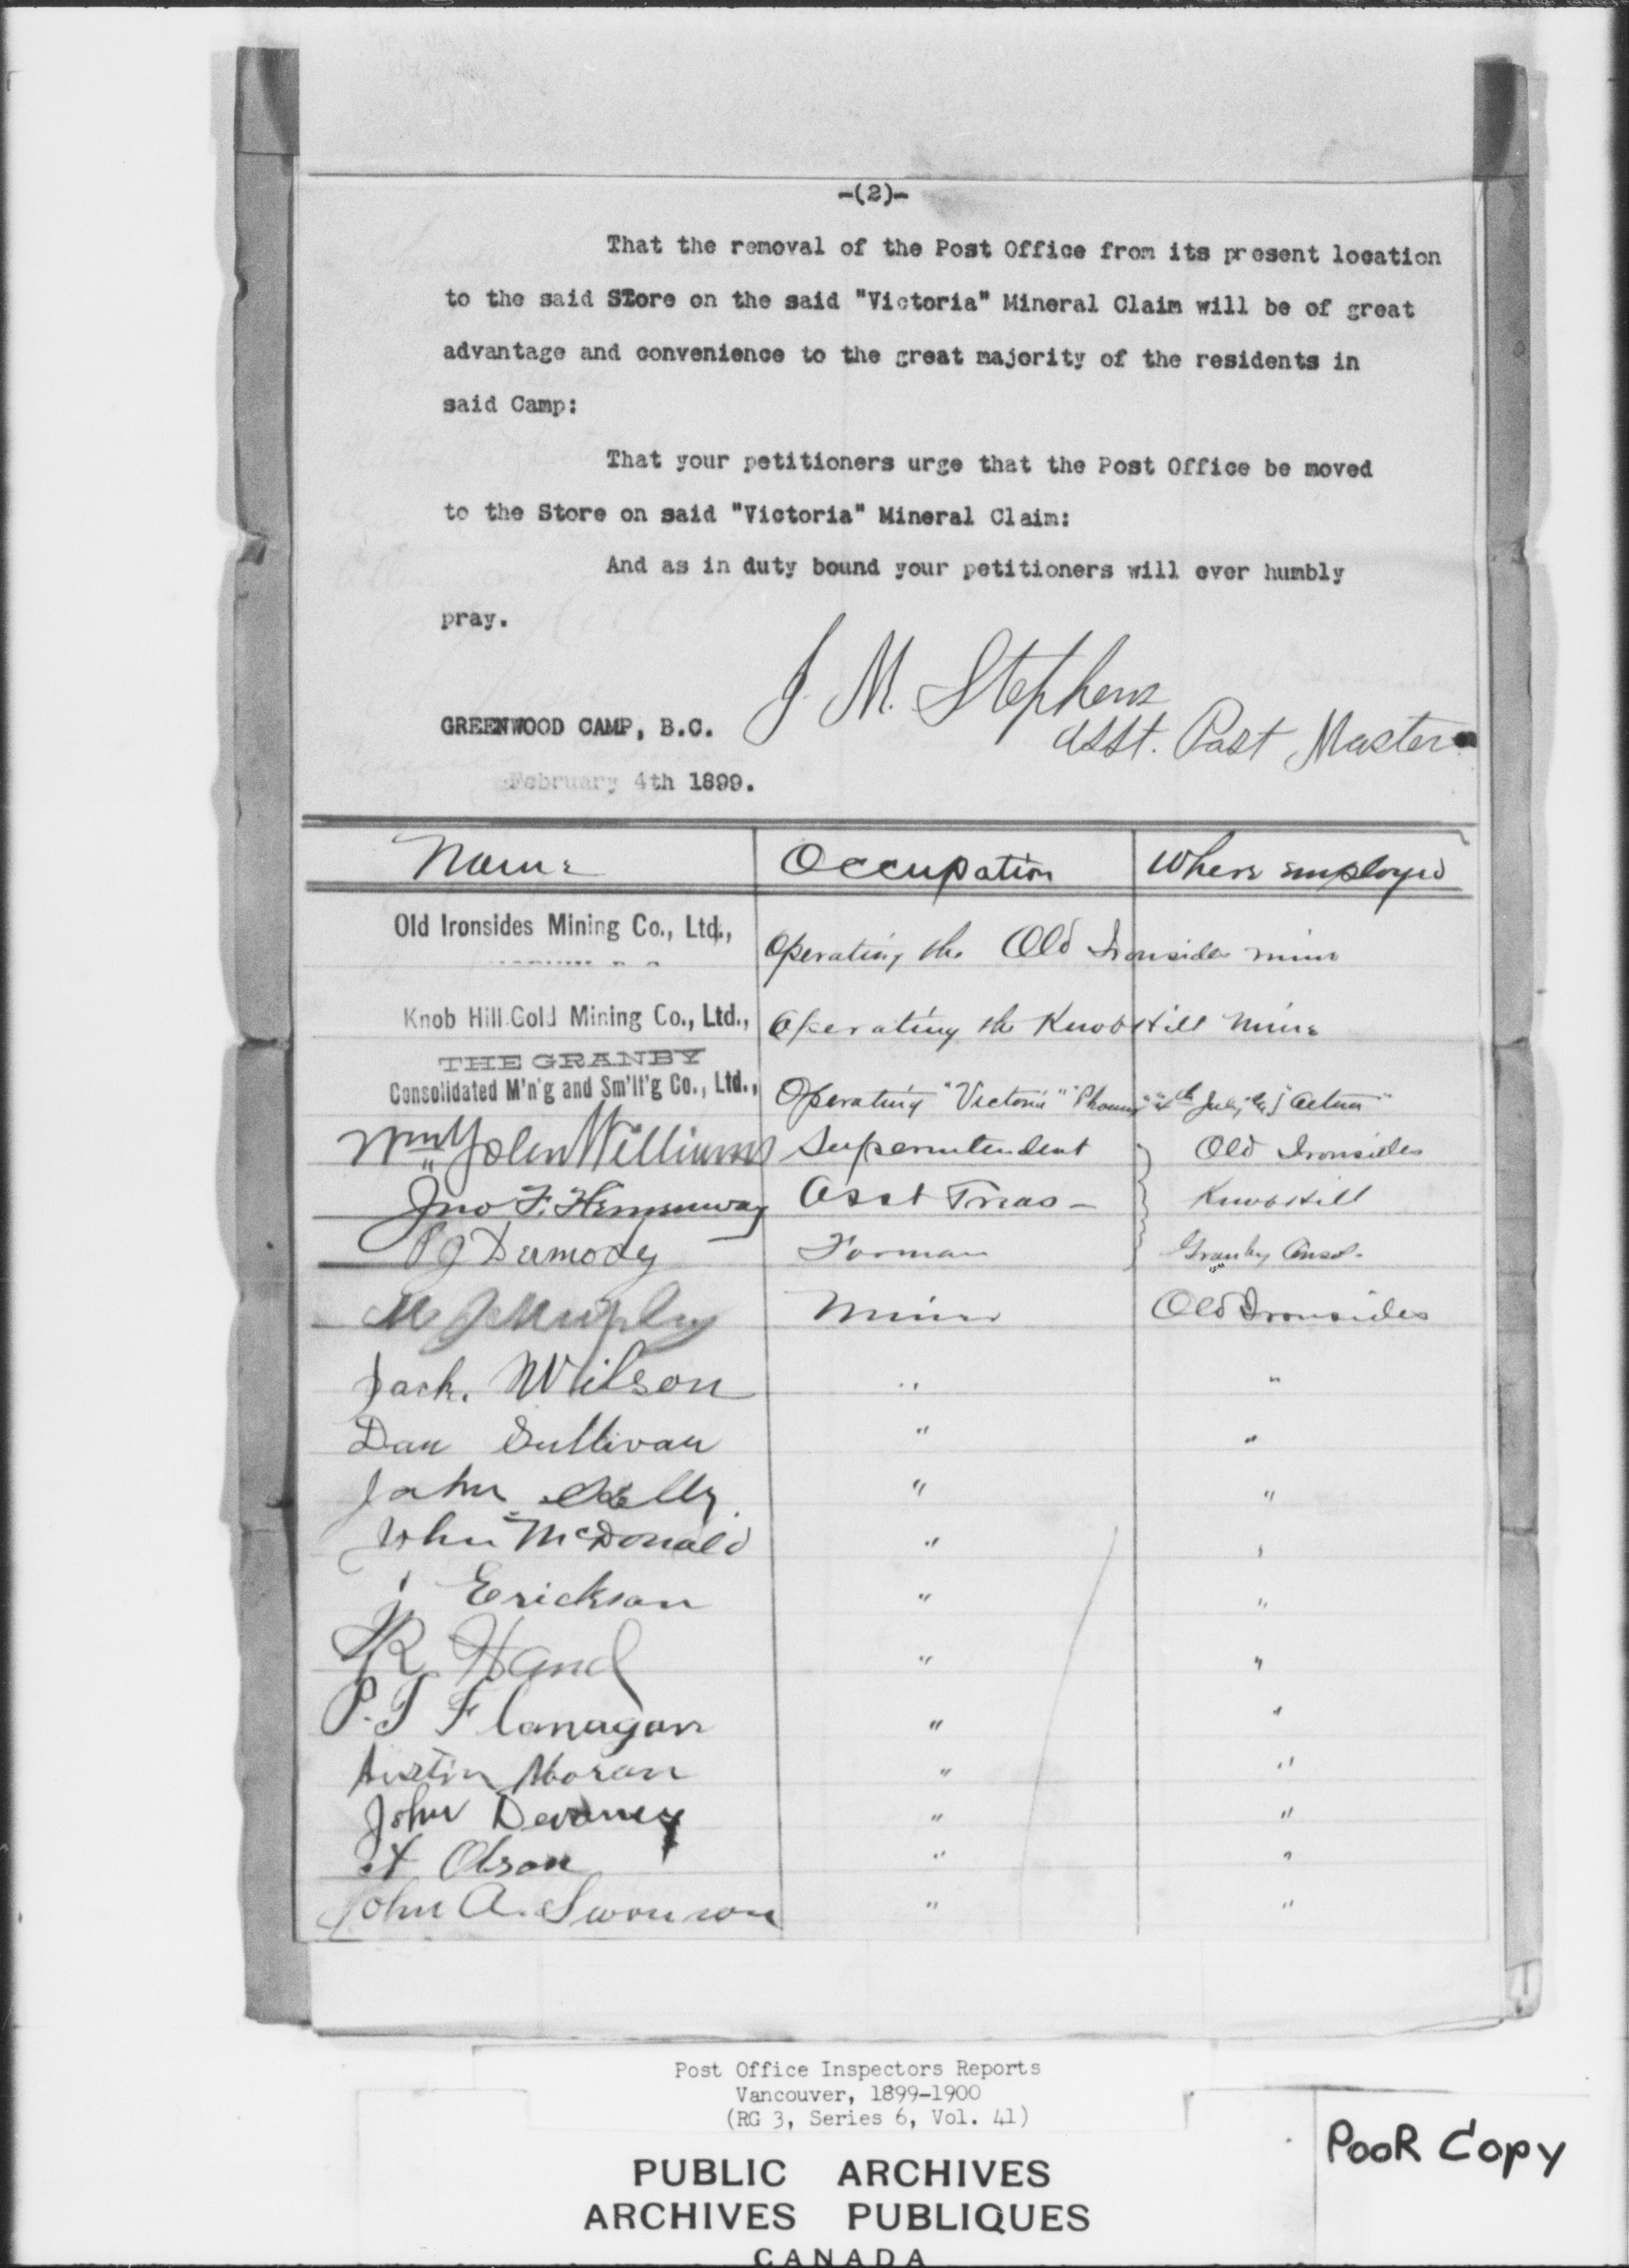 -(2)-
That the removal of the Post Office from its present location
to the said Store on the said "Victoria" Mineral Claim will be of great
advantage and convenience to the great majority of the residents in
said Camp:
That your petitioners urge that the Post Office be moved
to the Store on said "Victoria" Mineral Claim:
And as in duty bound your petitioners will ever humbly
pray.
J. M. Stephens
Asst. Post Master
GREENWOOD CAMP, B.C.
February 4th 1899.
Name Occupation Where employed
Old Ironsides Mining Co., Ltd., Operating the Old Ironsides mine
Knob Hill Gold Mining Co., Ltd., Operating the Knob Hill Mine
THE GRANBY
Consolidated M'n'g and Sm'lt'g Co., Ltd., Operating "Victoria" "Phoenix" "4th July" & "Aetna"
Wm Yolen Williams Superintendent Old Ironsides
Jno F. Hemenway Asst Treas - Knob Hill
P J Dermody Forman Granby Consol.
M J Murphy Miner Old Ironsides
Jack. Wilson " "
Dan Sullivan " "
John Kelly " "
John McDonald " "
Erickson " "
R Hand " "
P. T Flanagan " "
Austin Moran " "
John Devaney " "
A Olson " "
John A. Swonson " "
Post Office Inspectors Reports
Vancouver, 1899-1900
(RG 3, Series 6, Vol. 41)
PUBLIC ARCHIVES
ARCHIVES PUBLIQUES
CANADA
POOR COPY